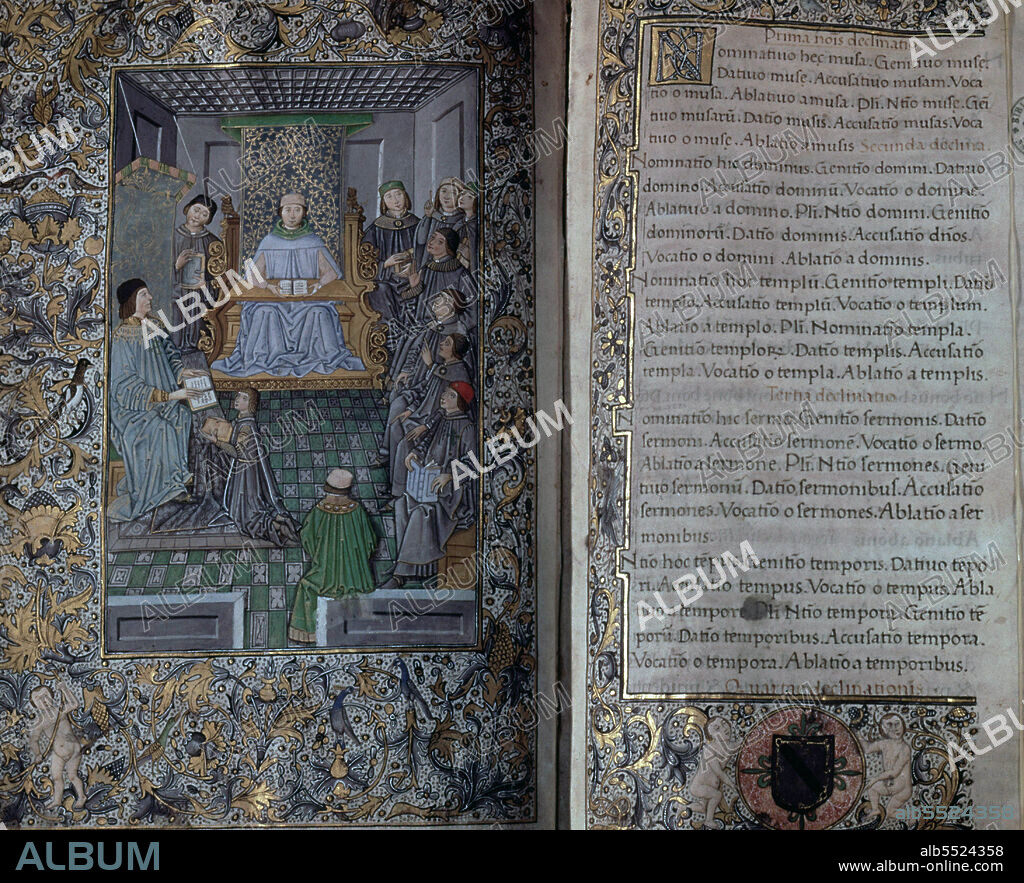 Prima nois declinati
Nominatiuo hec musa. Genitiuo muse.
Datiuo muse. Accusatiuo musam. Voca
tio o musa. Ablatiuo a musa. Pli. Ntio muse. Geni
tiuo musarū. Datio musis. Accusatio musas. Voca
tiuo o muse. Ablatio a musis Secunda declina.
Nominatio hic dominus. Genitio domini. Datiuo
domino. Accusatio dominū. Vocatio o domine.
Ablatiuo a domino. Pli. Ntio domini. Genitio
dominorū. Datio dominis. Accusatio dños.
Vocatio o domini. Ablatio a dominis.
Nominatio hoc templū. Genitio templi. Datio
templo. Accusatio templū. Vocatio o templum.
Ablatio a templo. Pli. Nominatio templa.
Genitio templorꝝ. Datio templis. Accusatio
templa. Vocatio o templa. Ablatio a templis.
Tertia declinatio
Nominatio hic sermo. Genitio sermonis. Datio
sermoni. Accusatio sermonē. Vocatio o sermo.
Ablatio a sermone. Pli. Ntio sermones. Geni
tiuo sermonū. Datio sermonibus. Accusatio
sermones. Vocatio o sermones. Ablatio a ser
monibus.
Ntio hoc tēpus. Genitio temporis. Datiuo tēpo
ri. Accusatio tempus. Vocatio o tempus. Abla
tiuo a tempore. Pli. Ntio tempora. Genitio tē
porū. Datio temporibus. Accusatio tempora.
Vocatio o tempora. Ablatio a temporibus.
Quarta declinationis
alb5524358
ALBUM
alb5524358
www.album-online.com